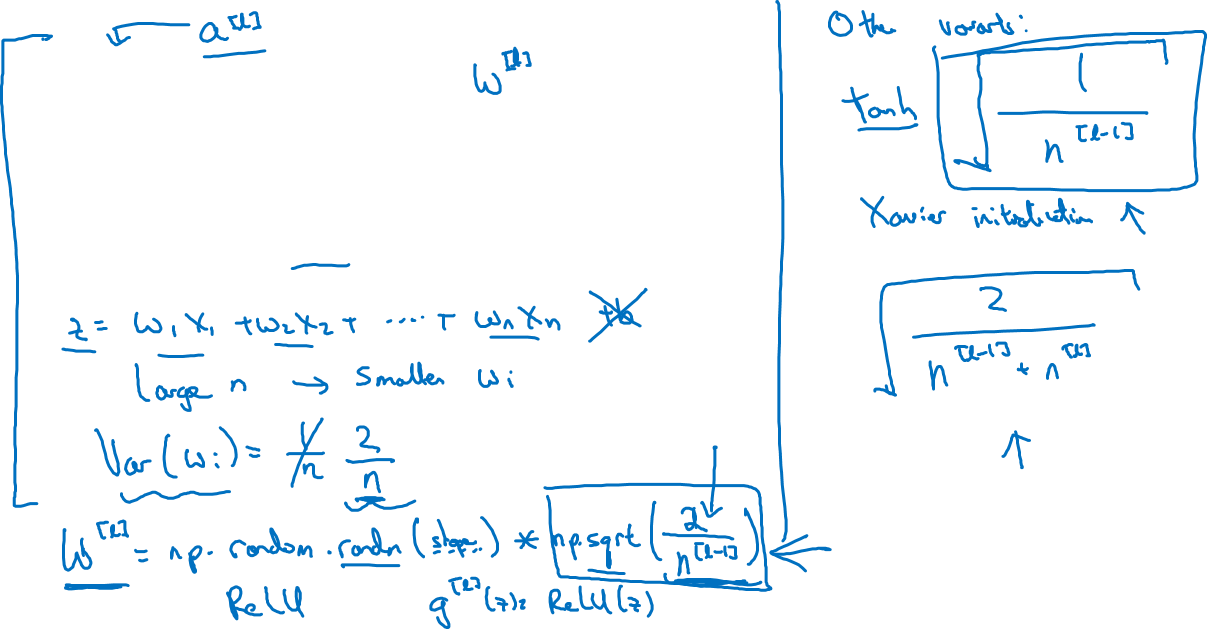 a^[l]
W^[l]
z = w₁x₁ + w₂x₂ + ..... + wₙxₙ +b
Large n → Smaller wi
Var(wi) = 1/n 2/n
W^[l] = np.random.randn(shape) * np.sqrt(2/n^[l-1])
ReLU g^[l](z) = ReLU(z)
Other variants:
tanh √(1/n^[l-1])
Xavier initialization ↑
√(2/(n^[l-1] + n^[l]))
↑